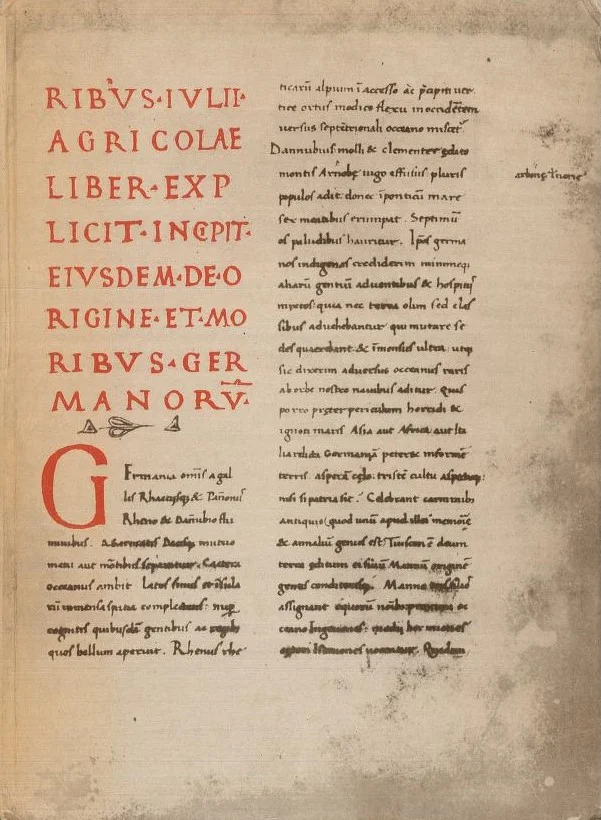 RIBVS·IVLII·
AGRICOLAE
LIBER·EXP
LICIT·INCIPIT·
EIVSDEM·DE·O
RIGINE·ET·MO
RIBVS·GER
MANORV̄·
Germania om̄is a gal
lis Rhaetisq; & Pānoniis
Rheno & Dānubio flu
minibus. a Sarmatis Dacisq; mutuo
metu aut mōtibus separatur. Caetera
occeanus ambit Latos sinus et īsula
rū immensa spatia complectens: nup
cognitis quibusdā gentibus ac regib;
quos bellum aperuit. Rhenus rhe
ticarū alpium īaccesso ac p̄cipiti ver
tice ortus modico flexu in occidētem
versus septētrionali occeano miscet
Dannubius molli & clementer edito
montis Arnobę iugo effusus pluris
populos adit. donec īponticū mare
sex meatibus erumpat. Septimū
os paludibus hauritur. Ip̄os germa
nos indigenas crediderim minimeq;
aliarū gentiū adventibus & hospitiis
mixtos: quia nec terra olim sed clas
sibus advehebantur qui mutare se
des quaerebant & īmensus ultra. utq;
sic dixerim adversus occeanus raris
ab orbe nostro navibus aditur. Quis
porro pręter periculum horridi &
ignoti maris Asia aut Africa aut Ita
lia relicta Germaniā peteret informē
terris. asperā cęlo: tristē cultu aspectuq;
nisi si patria sit. Celebrant carminib;
antiquis (quod unū apud illos memorię
& annaliū genus est) Tuistonē deum
terra editum et filiū Mannū originē
gentis conditorisq;. Manno tris filios
assignant e quorū noībus proximi oc
ceano Ingaevones: medii her
Quidam